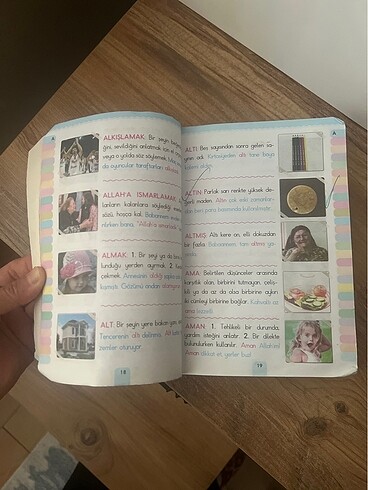 A
ALKIŞLAMAK: Bir şeyin beğenil
ğini, sevildiğini anlatmak için el
veya o yolda söz söylemek.
da oyuncular taraftarları alkışladı.
ALLAH'A ISMARLAMAK:
lanların kalanlara söylediği
sözü, hoşça kal. Babaannem
rılırken bana, "Allah'a
ALMAK: 1. Bir şeyi ya da
lunduğu yerden ayırmak. 2.
çekmek. Annemin aldığı
kamaştı. Gözümü ondan
ALT: Bir şeyin yere bakan yanı
Tencerenin altı delinmiş. Alt
zimler oturuyor.
18
A
ALTI: Beş sayısından sonra gelen sa-
yının adı. Kırtasiyeden altı tane boya
kalemi aldım.
ALTIN: Parlak sarı renkte yüksek de-
ğerli maden. Altın çok eski zamanlar-
dan beri para basımında kullanılmıştır.
ALTMIŞ: Altı kere on, elli dokuzdan
bir fazla. Babaannem tam altmış ya-
şında.
AMA: Belirtilen düşünceler arasında
karşıtlık olan, birbirini tutmayan, çeliş-
kili ya da az da olsa birbirine aykırı
iki cümleyi birbirine bağlar. Kahvaltı az
ama lezzetli.
AMAN: 1. Tehlikeli bir durumda,
yardım isteğini anlatır. 2. Bir dilekte
bulunulurken kullanılır. Aman Allah'ım!
Aman dikkat et, yerler buz!
19